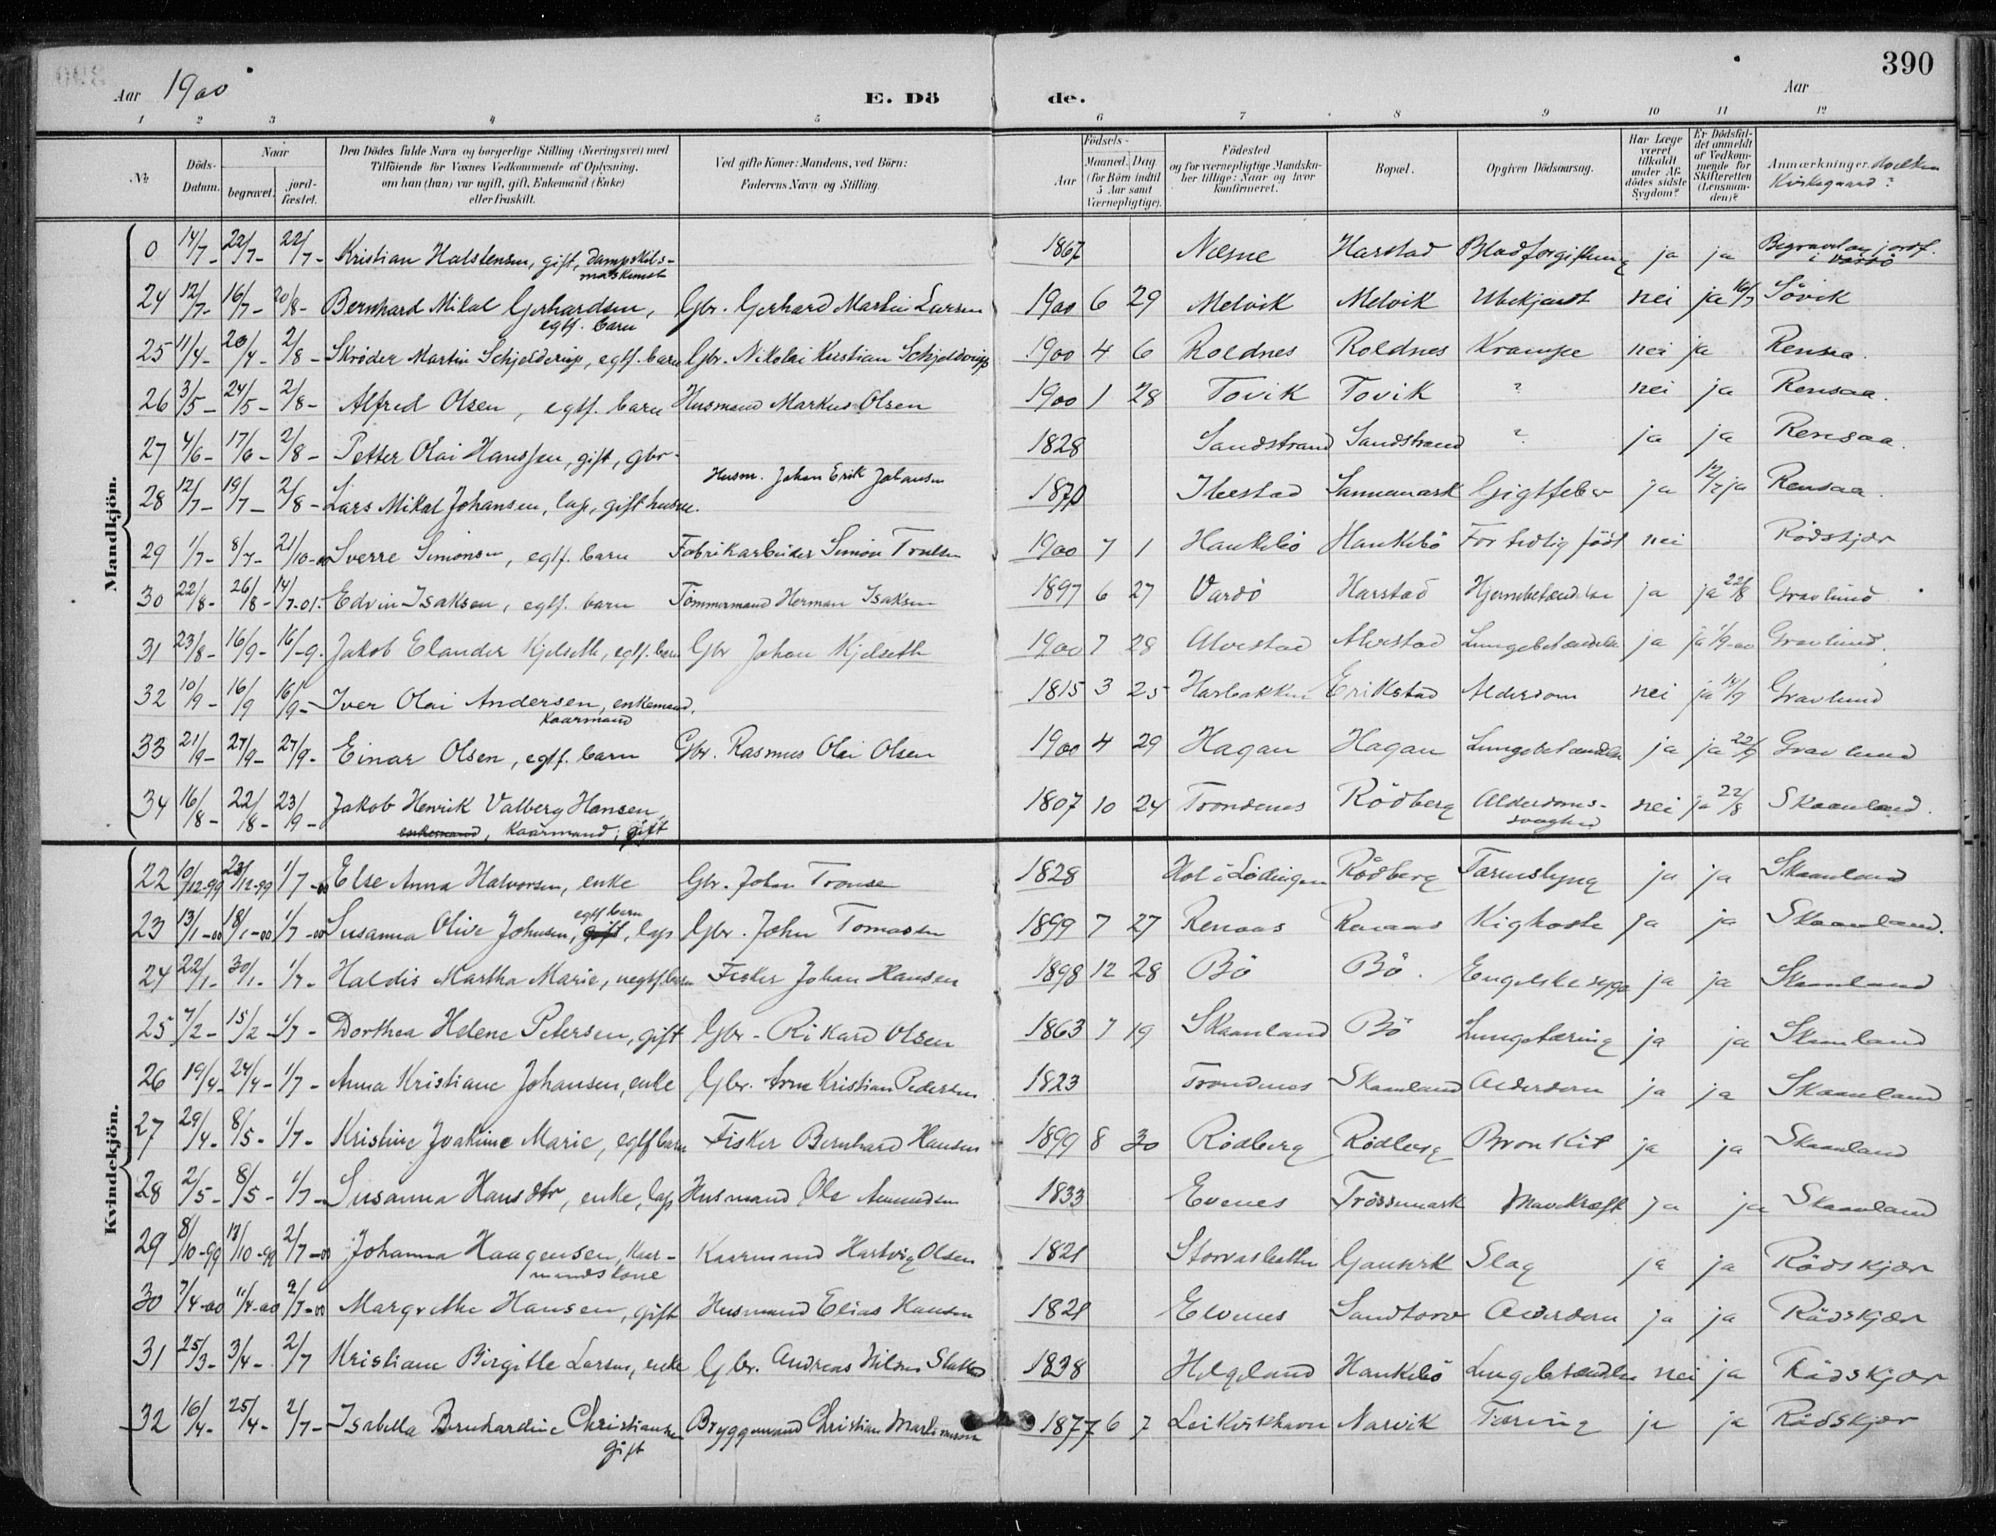 390
Aar 1900 E. Döde. Aar
1 2 3 4 5 6 7 8 9 10 11 12
№ Döds-Datum. Naar begravet. jord-fæstet. Den Dödes fulde Navn og borgerlige Stilling (Næringsvei) med Tilföiende for Voxnes Vedkommende af Oplysning, om han (hun) var ugift, gift, Enkemand (Enke) eller fraskilt. Ved gifte Koner: Mandens, ved Börn: Faderens Navn og Stilling. Födsels- Aar Maaned. Dag (for Börn indtil 5 Aar samt Værnepligtige). Födested og for værnepligtige Mandskaber tillige: Naar og hvor konfirmeret. Bopæl. Opgiven Dödsaarsag. Har Læge været tilkaldt under Afdödes sidste Sygdom? Er Dödsfaldet anmeldt af Vedkommende for Skifteretten (Lensmanden)? Anmærkninger. Hvilken Kirkegaard?
Mandkjön.
0 14/7- 22/7- 22/7- Kristian Halstensen, gift, dampskibsmaskinist 1867 Nesne Harstad Blodforgiftning ja ja Begravet og jordf. i Vardö
24 12/7- 16/7- 20/8- Bernhard Mikal Gerhardsen, egtf. barn Gbr. Gerhard Martin Larsen 1900 6 29 Melvik Melvik Ubekjendt nei ja 16/7 Sövik
25 11/4- 20/4- 2/8- Skröder Martin Schjelderup, egtf. barn Gbr. Nikolai Kristian Schjelderup 1900 4 6 Roldnes Roldnes Krampe nei ja Rensaa.
26 3/5- 24/5- 2/8- Alfred Olsen, egtf. barn Husmand Markus Olsen 1900 1 28 Tovik Tovik ? nei ja Rensaa.
27 4/6- 17/6- 2/8- Petter Olai Hanssen, gift, gbr. 1828 Sandstrand Sandstrand ? ja ja Rensaa.
28 12/7- 19/7- 2/8- Lars Mikal Johansen, lap, gift husm. Husm. Johan Erik Johansen 1870 Ibestad Sannemark Gigtfeber ja 12/7 ja Rensaa.
29 1/7- 8/7- 21/10-00 Sverre Simonsen, egtf. barn Fabrikarbeider Simon Troelsen 1900 7 1 Haukebö Haukebö For tidlig födt nei Rödskjær
30 22/8- 26/8- 14/7-01. Edvin Isaksen, egtf. barn Tömmermand Herman Isaksen 1897 6 27 Vardö Harstad Hjernebetændelse ja ja 22/8 Gravlund
31 23/8- 16/9- 16/-9. Jakob Elander Kjelseth, egtf. barn Gbr Johan Kjelseth 1900 7 28 Alvestad Alvestad Lungebetændelse ja ja 1/9-00 Gravlund.
32 10/9- 16/9 16/9- Iver Olai Andersen, enkemand, kaarmand 1815 3 25 Harbakken Erikstad Alderdom nei ja Gravlund
33 21/9- 27/9- 27/9- Einar Olsen, egtf. barn Gbr. Rasmus Olai Olsen 1900 4 29 Hagan Hagan Lungebetændelse ja ja 22/9 Gravlund
34 16/8- 22/8- 23/9- Jakob Henrik Valberg Hansen, enkemand, kaarmand, gift 1807 10 24 Trondenes Rödberg Alderdomssvaghed nei ja 22/8 Skaanland.
Kvindekjön.
22 10/12-99 23/12-99 1/7-00 Else Anna Halvorsen, enke Gbr. Johan Tronsen 1828 Hol i Lödingen Rödberg Tarmslyng ja ja Skaanland
23 13/1-00 18/1-00 1/7-00 Susanna Olive Johnsen, gift, egtf barn, lap Gbr. John Tomassen 1899 7 27 Renaas Renaas Kighoste ja ja Skaanland.
24 22/1- 30/1- 1/7- Haldis Martha Marie, uegtf barn Fisker Johan Hansen 1898 12 28 Bö Bö. Engelske syge ja ja Skaanland
25 7/2- 15/2- 1/7- Dorthea Helene Petersen, gift Gbr- Rikard Olsen 1863 7 19 Skaanland Bö Lungetæring ja ja Skaanland
26 19/4- 24/4- 1/7- Anna Kristiane Johansen, enke Gbr. Arne Kristian Pedersen 1823 Trondenes Skaanland Alderdom ja ja Skaanland
27 29/4- 8/5- 1/7- Kristine Joakime Marie, egtf barn Fisker Bernhard Hansen 1899 8 30 Rödberg Rödberg Bronkit ja ja Skaanland
28 2/5- 8/5- 1/7- Susanna Hansdtr, enke, lap Husmand Ole Amundsen 1833 Evenes Trössemark Mavekræft ja ja Skaanland
29 8/10-99 13/10-99 2/7-00 Johanna Haagensen, kaarmandskone Kaarmand Hartvig Olsen 1821 Gausvik Slag ja ja Rödskjær
30 7/4-00 11/4-00 2/7-00 Margrethe Hansen, gift Husmand Elias Hansen 1821 Elvenes Sandtorv Alderdom ja ja Rödskjær
31 25/3- 3/4- 2/7 Kristiane Birgitte Larsen, enke Gbr. Andreas Nilsen 1838 Helgeland Haukebö Lungebetændelse nei ja Rödskjær
32 16/4- 25/4- 2/7- Isabella Bernhardine Christiansen gift Bryggemand Christian Martinusen 1877 6 7 Leikvikhavn Narvik Tæring ja ja Rödskjær